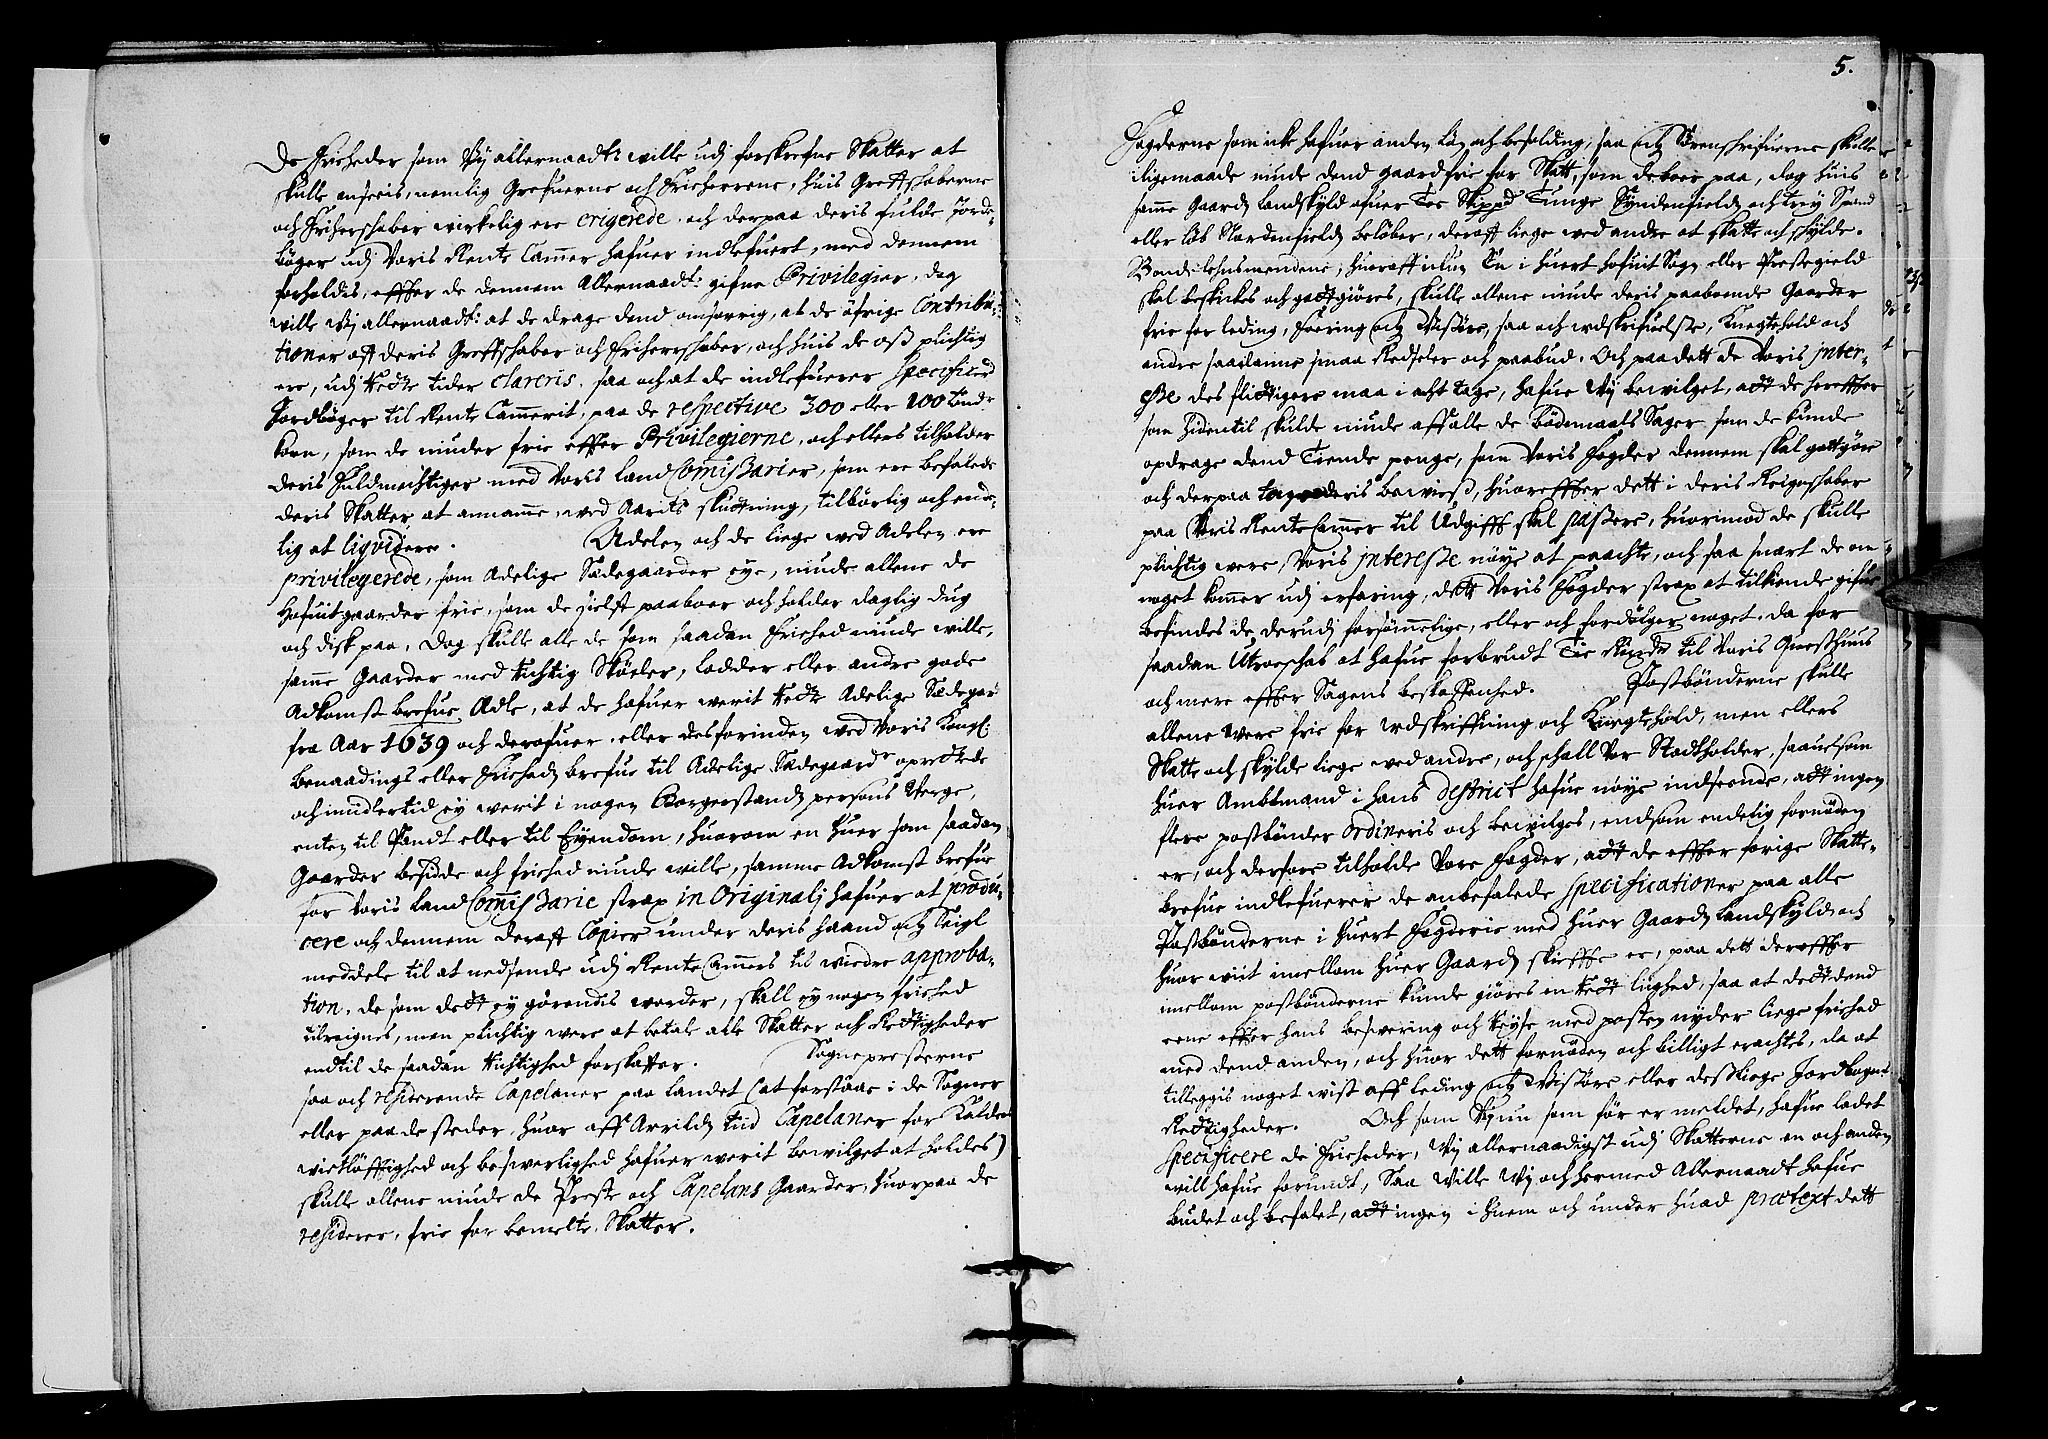 De Friheder som Vy allernaadt: wille udj forskrefne Skatter at
skulle ansees, nemlig Grefuerne och Friherrerne, huis Grefskaberne
och Friherskaber wirkelig ere erigerede och derpaa deris fulde Jorde-
bøger udj Voris Rente Cammer hafuer indlefuert, med dennem
forholdis, effter de dennem Allernaadt: gifne Privilegier, dog
wille Vy allernaadt: at de drage dend omsorrig, at de øfrige Contribu-
tioner aff deris Grefskaber och Friherskaber, och huis de oß plichtig
ere, udj rette tider clareris, saa och at de indlefuerer Specificerd
Jordbøger til Rente Cammerit, paa de respective 300 eller 100 Tønder
korn, som de niuder frie effter Privilegierne, och ellers tilholder
deris Fuldmechtiger med Voris Land Commissarier, som ere befalede
deris Skatter at annamme, ved Aarits slutning, tilbørlig och ende-
lig at liqvidere. Adelen och de liege wed Adelen ere
privilegerede, som Adelige Sædegaarder eye, niude allene de
Hofuitgaarder frie, som de sielf paaboer och holder daglig dug
och disk paa, Dog skulle alle de som saadan frihed niude wille,
samme Gaarder med richtig Skiøder, lodder eller andre gode
Adkomst brefue Adle, at de hafuer werit rette Adelige Sædegaarder
fra Aar 1639 och derofuer, eller desforinden wed Voris Kongl:
benaadings eller Friheds brefue til Adelige Sædegaarde oprettede
och imidlertid ey werit i nogen Borgerstands persons Verge,
enten til Pandt eller til Eyendom, huorom en huer som saadan
Gaarder besidde och frihed niude wille, samme Adkomst brefue
for Voris Land Commissarie strax in Originali hafuer at produ-
cere och dennem deraff Copier under deris haand och Seigl
meddele til at nedsende udj Rente Cammers til wiedre approba-
tion, de som dett ey giørendis worder, skall ey nogen frihed
tilreignes, men plichtig were at betale alle Skatter och Rettigheder
endtil de saadan richtighed forskaffer. Sognepresterne
saa och residerende Capelaner paa landet (at forstaae i de Sogner
eller paa de steder, huor aff Arrilds tiid Capelaner for Kaldens
wiitløfftighed och beswerlighed hafuer werit bewilget at holdes)
skulle allene niude de Preste och Capelans Gaarder, huorpaa de
residerer, frie for bemelte Skatter.
5.
Fogderne som icke hafuer anden Løn och besolding, saa och Sorenschrifuerne skulle
iligemaade niude dend gaard frie for Skatt, som de boer paa, dog huis
samme Gaards Landskyld ofuer Toe Skippd Tunge Syndenfields och trey Spand
eller Løb Nordenfields beløber, deraff liege wed andre at skatte och skylde.
Bondelehnsmendene, huoraff ickun En i huert hofuit Sogn eller Prestegield
skal beskickes och godtgiøres, skulle allene niude deris paaboende Gaarder
frie for leding, Foering och Wissøre, saa och udskrifuelse, Knegtehold och
andre saadanne smaa Redseler och paabud. Och paa dett de Voris inter-
esse des flittigere maa i acht tage, hafue Vy bewilget, at de hereffter
som hidentil skulde niude aff alle de bødemaals Sager som de kunde
opdrage dend Tiende penge, som Voris Fogder dennem skal gottgiøre
och derpaa tage deris bewiess, huoreffter dett i deris Reigenskaber
paa Voris Rente Cammer til Udgifft skal passere, huorimod de skulle
plichtig were, Voris interesse nøye at paachte, och saa snart de om
noget kommer udj erfaring, dett Voris Fogder strax at tilkiende gifue
befindes de derudj forsømmelige, eller och fordølger noget, da for
saadan Utroeskab at hafue forbrudt Tie Rixdr til Voris Questhuus
och mere effter Sagens beskaffenhed. Postbønderne skulle
allene were frie for udskrifftning och Knegtehold, men ellers
Skatte och skylde liege wed andre, och skall Vor Stadtholder, saauelsom
huer Ambtmand i hans District hafue nøye indseende, att ingen
flere postbønder ordineris och bewilges, end som endelig fornøden
er, och derfore tilholde Vore Fogder, att de effter forige Skatte-
brefue indlefuerer de anbefalede Specificationer paa alle
Postbønderne i huert Fogderie med huer Gaards Landskyld och
huor wiit imellom huer Gaards skiffte er, paa dett dereffter
imellom postbønderne kunde giøres en rett lighed, saa at dett dend
eene effter hans beswering och Reyse med posten nyder liege frihed
med dend anden, och huor dett fornøden och billigt erachtes, da at
tilleggis noget wist aff leding och Wissøre eller desliege Jordbogens
Rettigheder. Och som Vy nu som før er meldet, hafue ladet
Specificere de Friheder, Vy allernaadigst udj Skatterne en och anden
will hafue forundt, Saa Wille Vy och hermed Allernaadt hafue
budet och befalet, att ingen i huem och under huad prætext dett